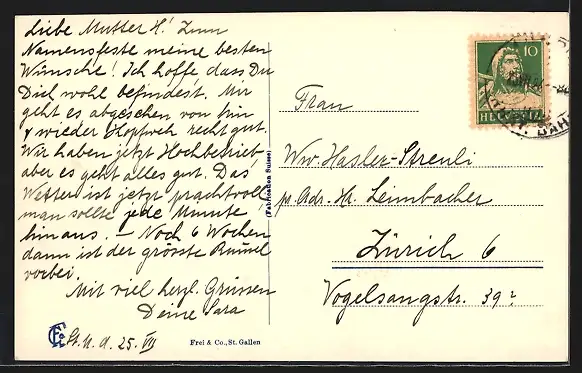 Liebe Mutter H! Zum
Namensfeste meine besten
Wünsche! Ich hoffe dass Du
Dich wohl befindest. Mir
geht es abgesehen von hin
& wieder Kopfweh recht gut.
Wir haben jetzt Hochbetrieb
aber es geht alles gut. Das
Wetter ist jetzt prachtvoll
man sollte jede Minute
hinaus. – Noch 6 Wochen
dann ist der grösste Rummel
vorbei.
Mit viel herzl. Grüssen
Deine Sara
St. M. d. 25. VII
Frei & Co., St. Gallen
(Fabrication Suisse)
10
HELVETIA
Frau
Ww. Hasler-Streuli
p. Adr. Hr. Leimbacher
Zürich 6
Vogelsangstr. 39